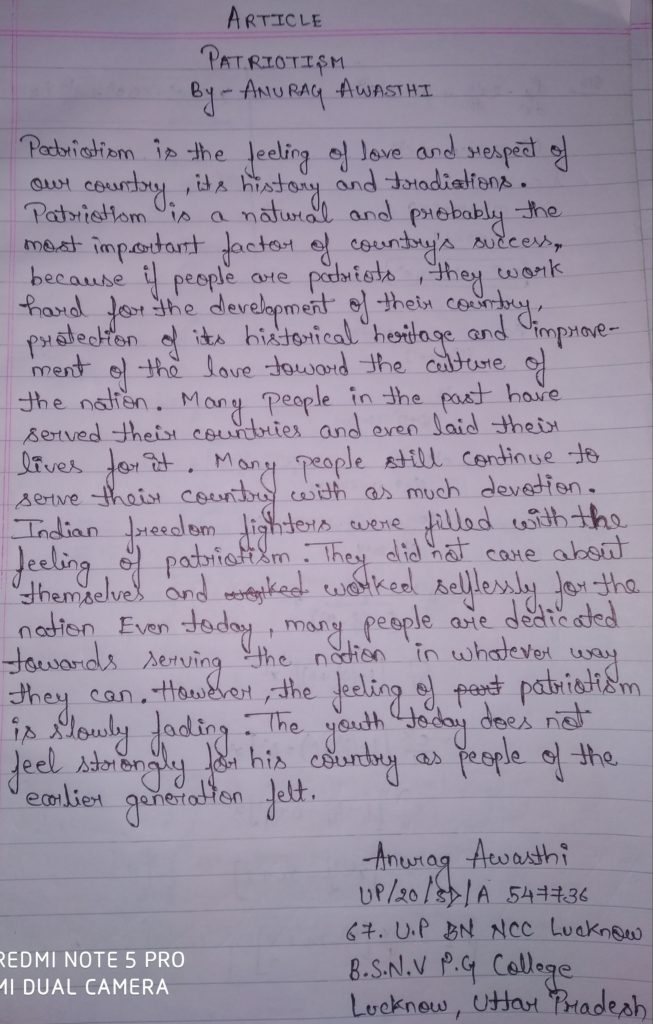 ARTICLE
PATRIOTISM
By - ANURAG AWASTHI
Patriotism is the feeling of love and respect of
our country, its history and tradiations.
Patriotism is a natural and probably the
most important factor of country's success,
because if people are patriots, they work
hard for the development of their country,
protection of its historical heritage and improve-
ment of the love toward the culture of
the nation. Many people in the past have
served their countries and even laid their
lives for it. Many people still continue to
serve their country with as much devotion.
Indian freedom fighters were filled with the
feeling of patriotism. They did not care about
themselves and worked worked selflessly for the
nation Even today, many people are dedicated
towards serving the nation in whatever way
they can. However, the feeling of part patriotism
is slowly fading. The youth today does not
feel strongly for his country as people of the
earlier generation felt.
Anurag Awasthi
UP/20/SD/A 547736
67. U.P BN NCC Lucknow
B.S.N.V P.G College
Lucknow, Uttar Pradesh
REDMI NOTE 5 PRO
MI DUAL CAMERA